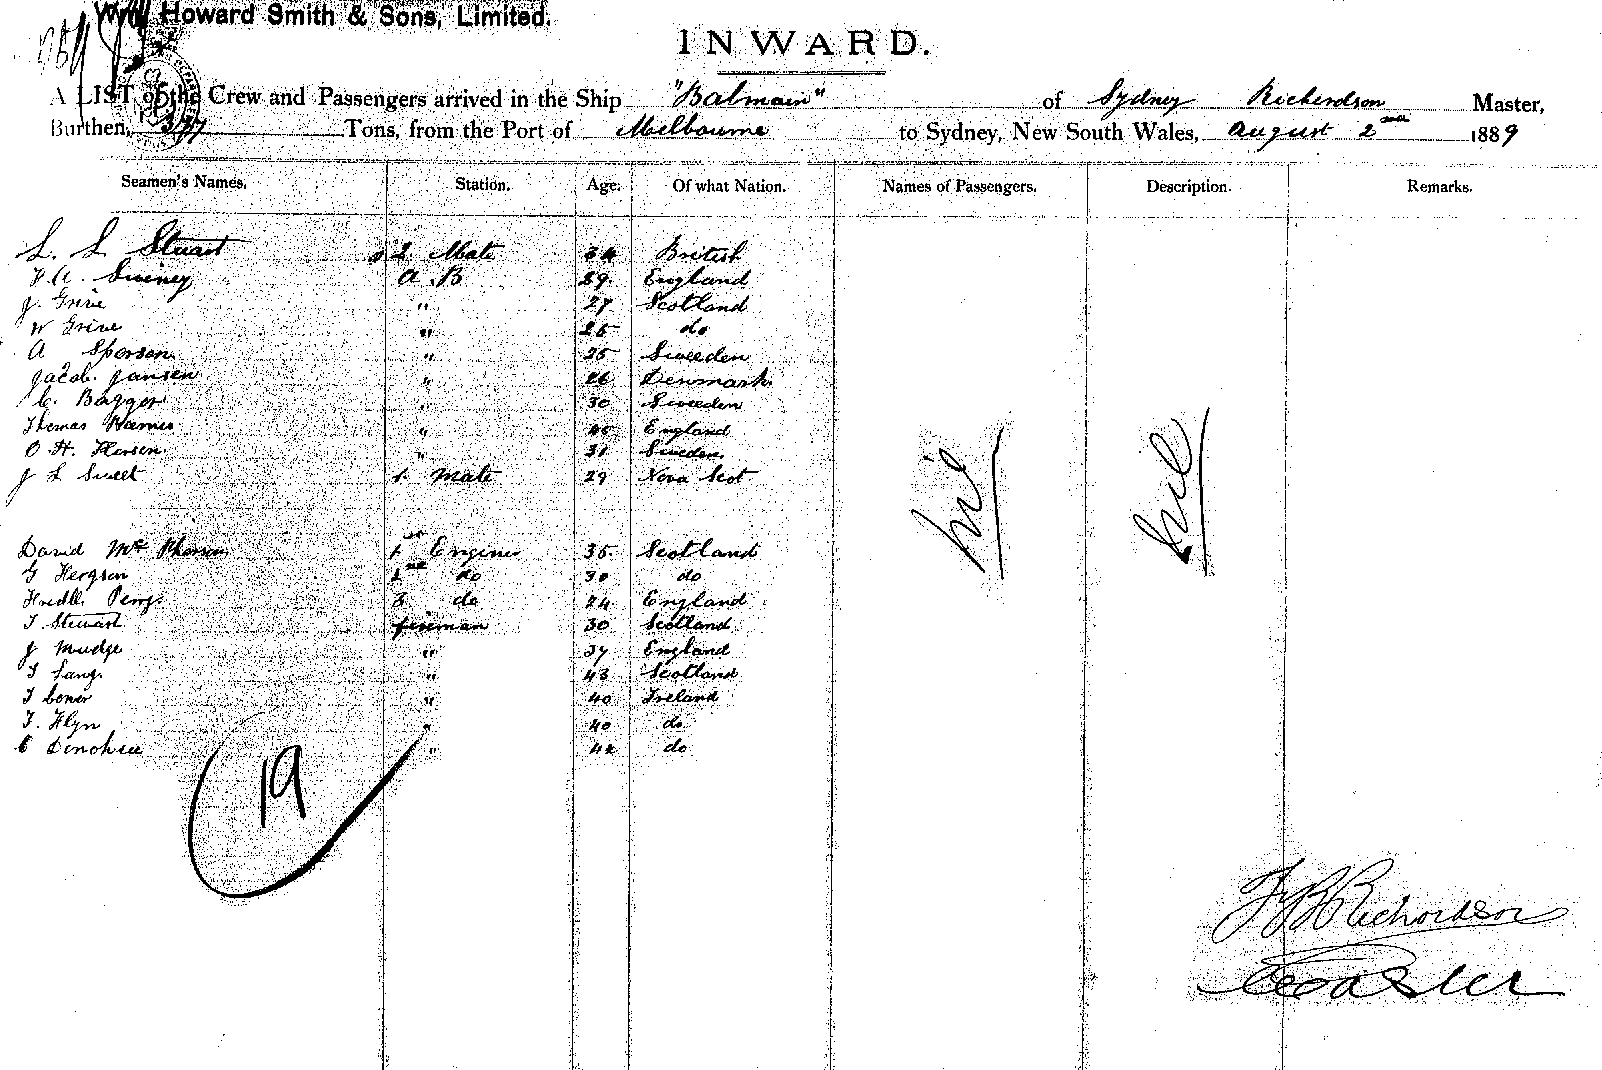 Wm Howard Smith & Sons, Limited.
INWARD.
A LIST of the Crew and Passengers arrived in the Ship "Balmain" of Sydney Richerdson Master,
Burthen, Tons, from the Port of Melbourne to Sydney, New South Wales, August 2nd 1889
Seamen's Names. Station. Age. Of what Nation. Names of Passengers. Description. Remarks.
L. L Stuart 2 Mate 34 British
A. Swiney A.B 29 England
J. Grive " 27 Scotland
W Grive " 25 do
A Sperson " 25 Sweeden
Jacob. Jansen " 26 Denmark
C. Bagger " 30 Sweeden
Thomas " 45 England
O. H. Hansen " 31 Sweden
J L Sweet 1. Mate 29 Nova Scot
nil nil
David Mc Pherson 1st Engineer 35 Scotland
G Hergson 2nd do 30 do
Fredk. Perry. 3 do 24 England
T Stewart fireman 30 Scotland
J Mudge " 37 England
T Lang. " 43 Scotland
T Coner " 40 Ireland
T. Flyn " 40 do
C Donohue " 42 do
19
Richardson
Coaster